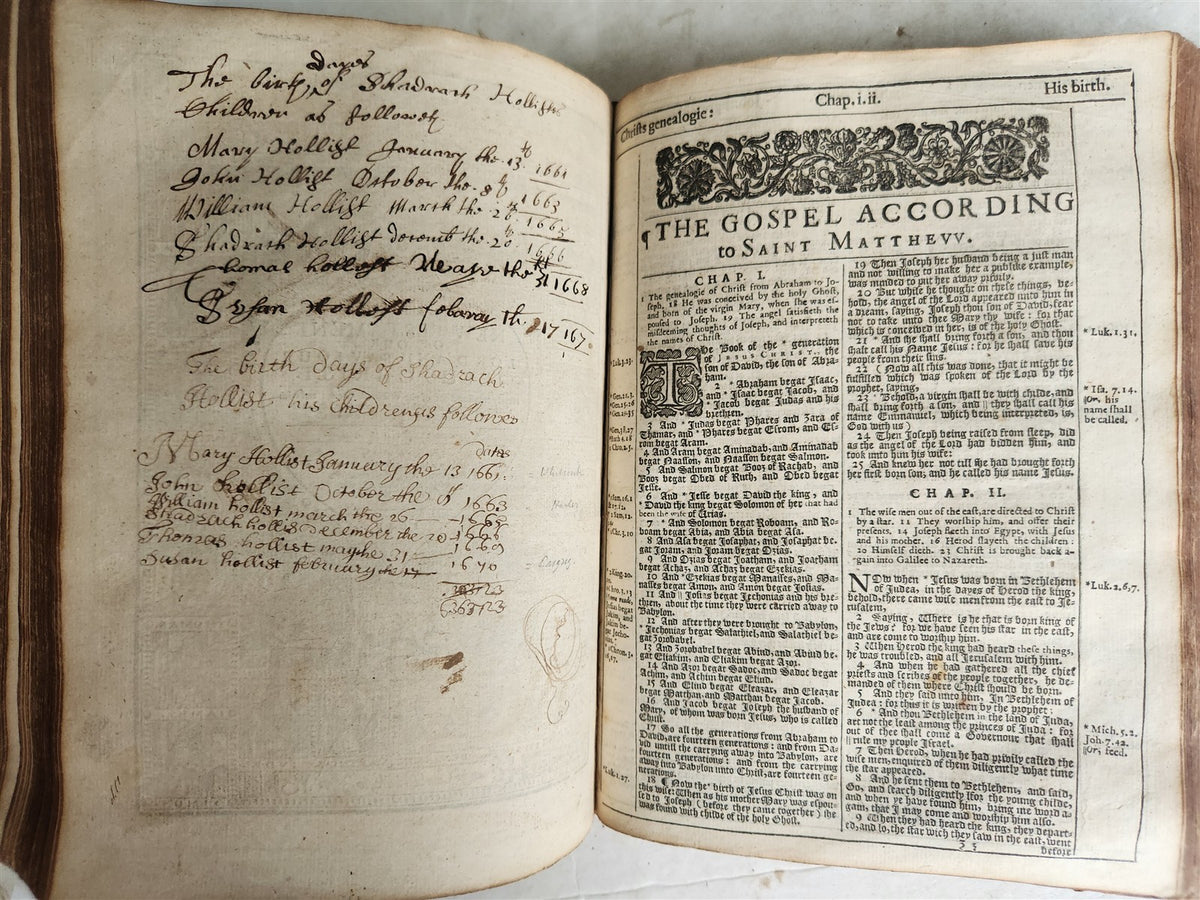 dayes
The birth of Shadrach Hollists
Children as followeth
Mary Hollist January the 13th 1661
John Hollist October the 8th 1663
William Hollist March the 26 1665
Shadrach Hollist decemb the 20th 1666
hollest the 31 1668
Susan Hollest febaray th 17 167
The birth days of Shadrach
Hollist his childrens follows
Dates
Mary Hollist January the 13 1661
John hollist October the 8 1663
William hollist march the 26 1665
Shadrach hollis december the 20 1666
Thomas hollist may the 31 1669
Susan hollist february the 17 1670
Christs genealogie: Chap. i. ii. His birth.
¶ THE GOSPEL ACCORDING
to SAINT MATTHEVV.
CHAP. I.
1 The genealogie of Christ from Abraham to Jo-
seph, 18 He was conceived by the holy Ghost,
and born of the virgin Mary, when she was es-
poused to Joseph. 19 The angel satisfieth the
misdeeming thoughts of Joseph, and interpreteth
the names of Christ.
The Book of the * generation
of JESUS CHRIST, the
son of David, the son of Abra-
ham.
2 * Abraham begat Isaac,
and * Isaac begat Jacob, and
* Jacob begat Judas and his
brethren.
3 And * Judas begat Phares and Zara of
Thamar, and * Phares begat Esrom, and Es-
rom begat Aram.
4 And Aram begat Aminadab, and Aminadab
begat Naasson, and Naasson begat Salmon.
5 And Salmon begat Booz of Rachab, and
Booz begat Obed of Ruth, and Obed begat
Jesse.
6 And * Jesse begat David the king, and
* David the king begat Solomon of her that had
been the wife of Urias.
7 * And Solomon begat Roboam, and Ro-
boam begat Abia, and Abia begat Asa.
8 And Asa begat Josaphat, and Josaphat be-
gat Joram, and Joram begat Ozias.
9 And Ozias begat Joatham, and Joatham
begat Achaz, and Achaz begat Ezekias.
10 And * Ezekias begat Manasses, and Ma-
nasses begat Amon, and Amon begat Josias.
11 And || Josias begat Jechonias and his bre-
thren, about the time they were carried away to
Babylon.
12 And after they were brought to Babylon,
* Jechonias begat Salathiel, and Salathiel be-
gat Zorobabel.
13 And Zorobabel begat Abiud, and Abiud be-
gat Eliakim, and Eliakim begat Azor.
14 And Azor begat Sadoc, and Sadoc begat
Achim, and Achim begat Eliud.
15 And Eliud begat Eleazar, and Eleazar
begat Matthan, and Matthan begat Jacob.
16 And Jacob begat Joseph the husband of
Mary, of whom was born Jesus, who is called
Christ.
17 So all the generations from Abraham to
David, are fourteen generations: and from Da-
vid untill the carrying away into Babylon, are
fourteen generations: and from the carrying
away into Babylon unto Christ, are fourteen ge-
nerations.
18 ¶ Now the * birth of Jesus Christ was on
this wise: When as his mother Mary was espou-
sed to Joseph (before they came together) she
was found with childe of the holy Ghost.
19 Then Joseph her husband being a just man
and not willing to make her a publike example,
was minded to put her away privily.
20 But while he thought on these things, be-
hold, the angel of the Lord appeared unto him in
a dream, saying, Joseph thou son of David, fear
not to take unto thee Mary thy wife: for that
which is conceived in her, is of the holy Ghost.
21 * And she shall bring forth a son, and thou
shalt call his Name Jesus: for he shall save his
people from their sins.
22 (Now all this was done, that it might be
fulfilled which was spoken of the Lord by the
prophet, saying,
23 * Behold, a virgin shall be with childe, and
shall bring forth a son, and || they shall call his
name Emmanuel, which being interpreted, is,
God with us)
24 Then Joseph being raised from sleep, did
as the angel of the Lord had bidden him, and
took unto him his wife:
25 And knew her not till she had brought forth
her first born son, and he called his name Jesus.
CHAP. II.
1 The wise men out of the east, are directed to Christ
by a star. 11 They worship him, and offer their
presents. 14 Joseph fleeth into Egypt, with Jesus
and his mother. 16 Herod slayeth the children:
20 Himself dieth. 23 Christ is brought back a-
gain into Galilee to Nazareth.
NOw when * Jesus was born in Bethlehem
of Judea, in the dayes of Herod the king,
behold, there came wise men from the east to Je-
rusalem,
2 Saying, Where is he that is born king of
the Jews? for we have seen his star in the east,
and are come to worship him.
3 When Herod the king had heard these things,
he was troubled, and all Jerusalem with him.
4 And when he had gathered all the chief
priests and scribes of the people together, he de-
manded of them where Christ should be born.
5 And they said unto him, In Bethlehem of
Judea: for thus it is written by the prophet:
6 * And thou Bethlehem in the land of Juda,
are not the least among the princes of Juda: for
out of thee shall come a Governour that shall
|| rule my people Israel.
7 Then Herod, when he had privily called the
wise men, enquired of them diligently what time
the star appeared.
8 And he sent them to Bethlehem, and said,
Go, and search diligently for the young childe,
and when ye have found him, bring me word a-
gain, that I may come and worship him also.
9 When they had heard the king, they depart-
ed, and lo, the star which they saw in the east, went
before
* Luk. 1.31.
* Isa. 7.14.
|| Or, his
name shall
be called.
* Luk. 2.6,7.
* Mich. 5.2.
Joh. 7.42.
|| Or, feed.
* Luk. 1.27.